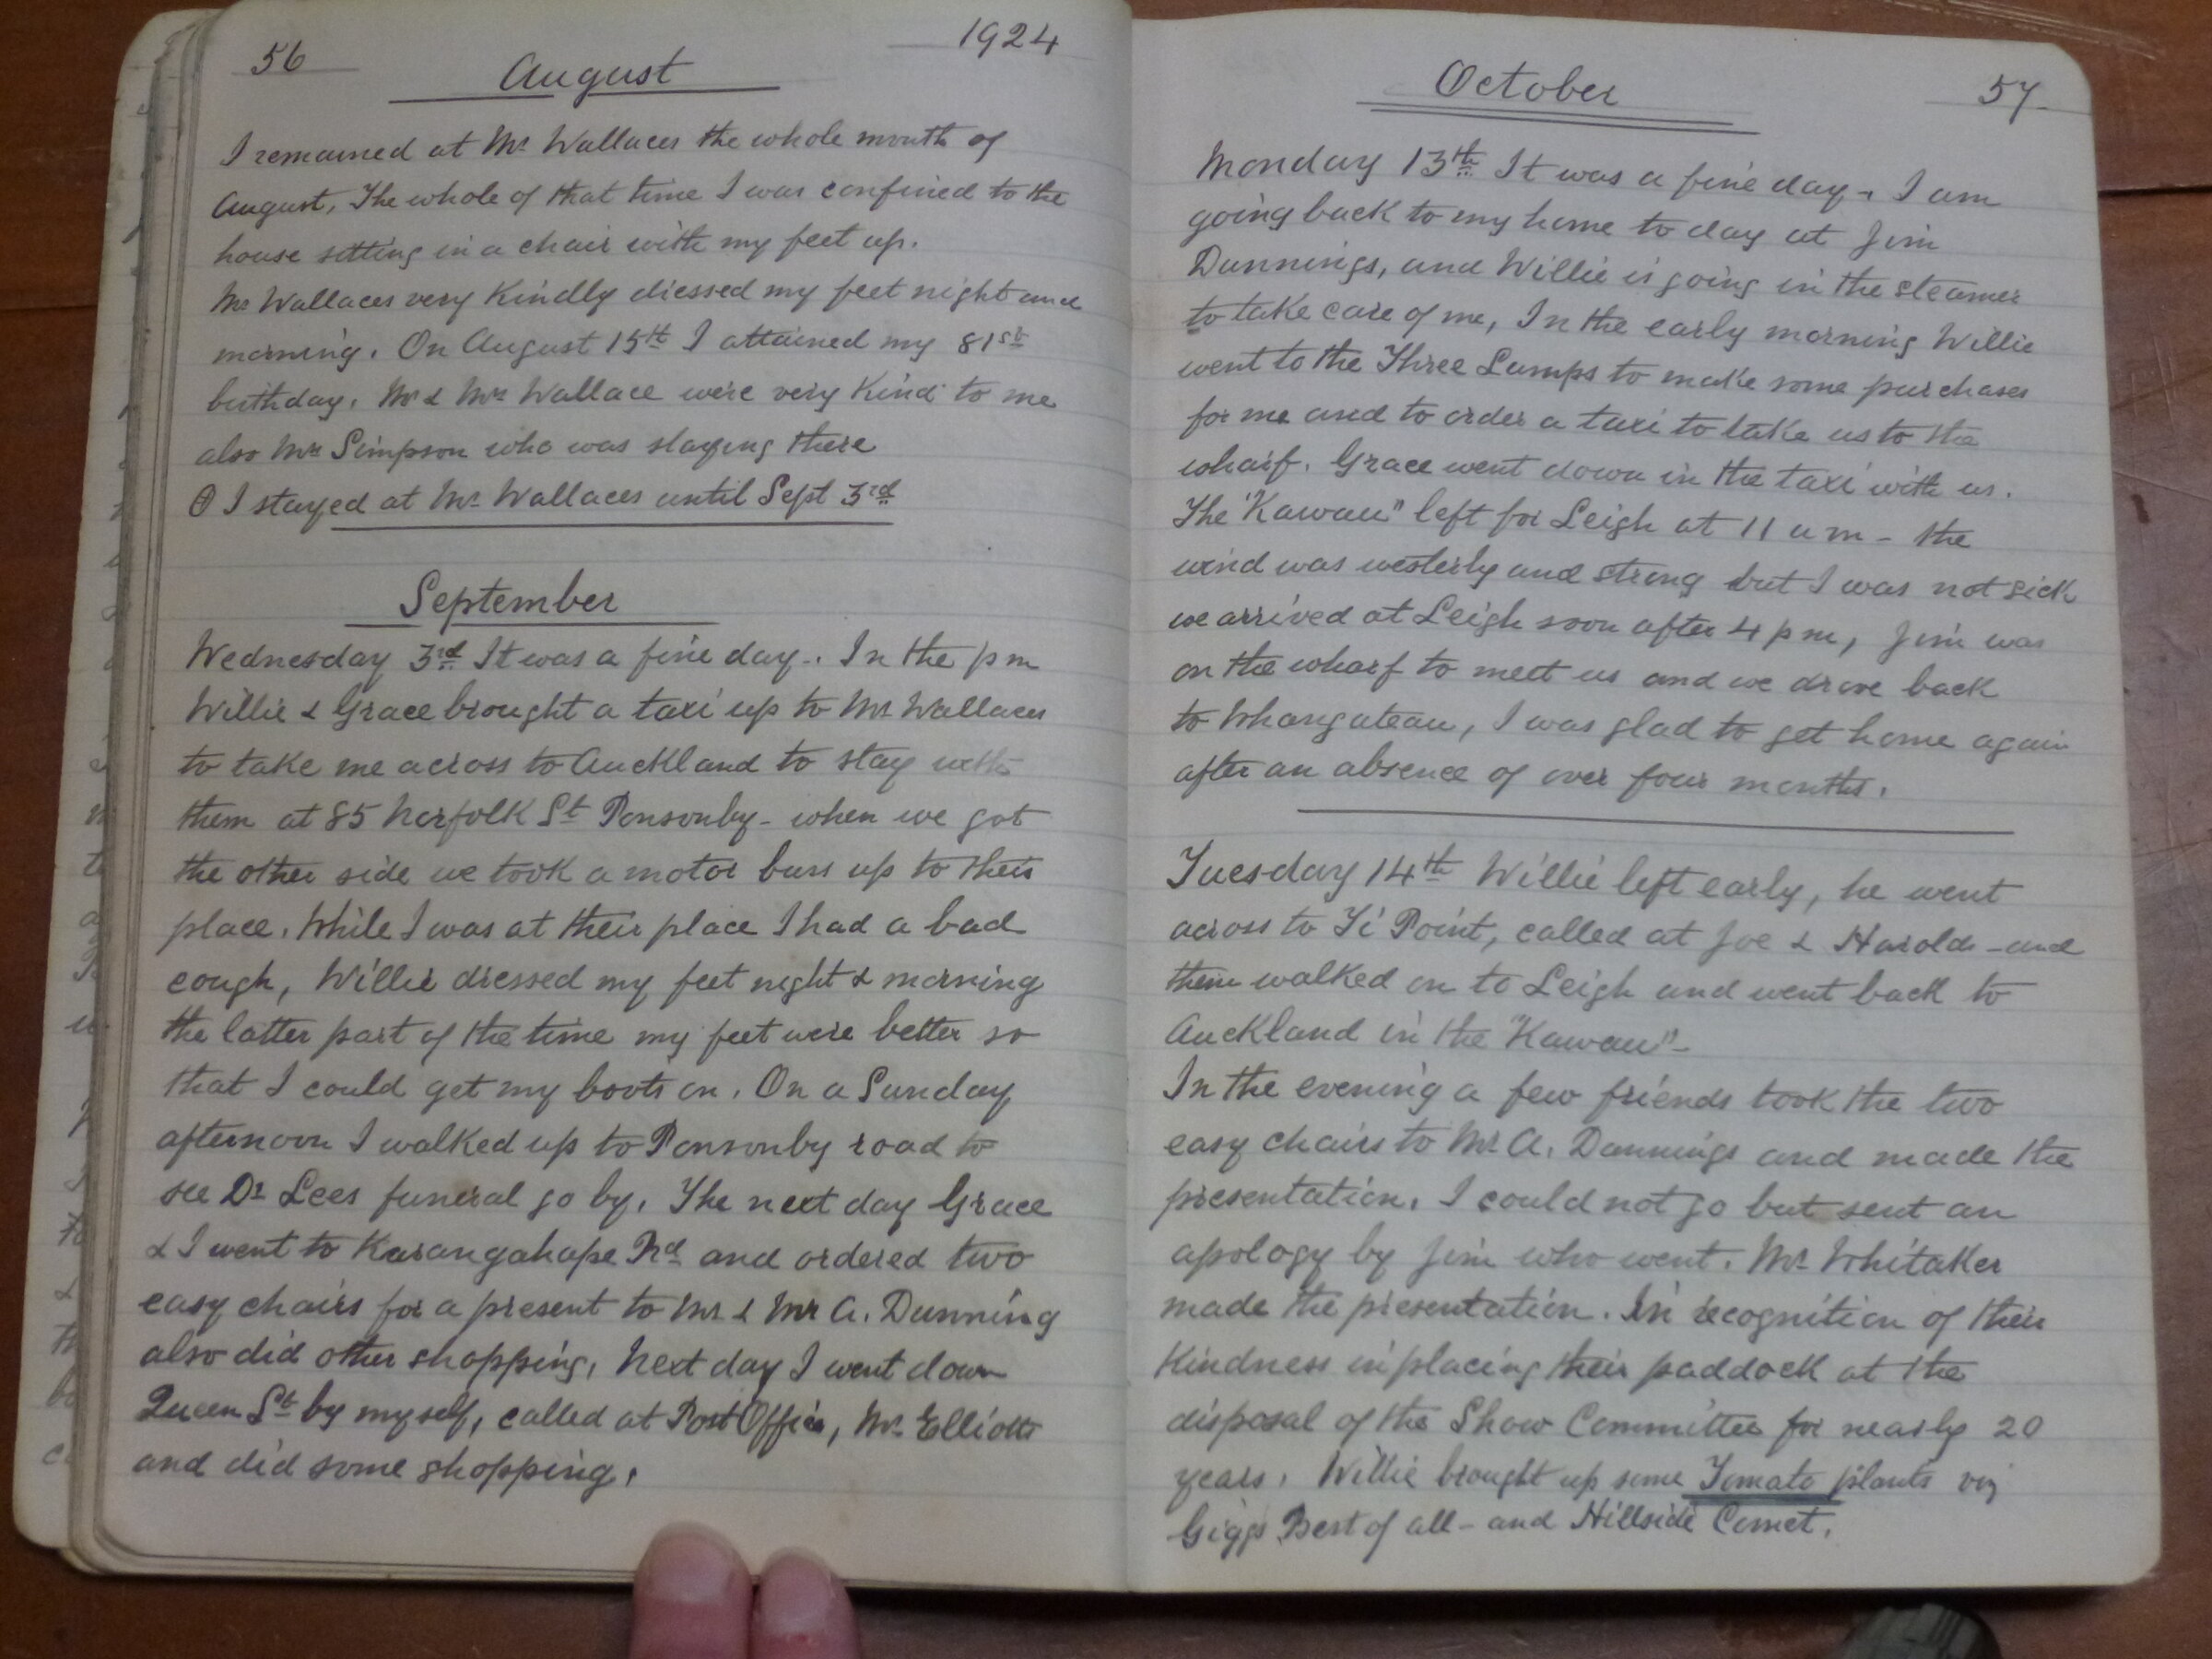 56
1924
August
I remained at Mrs Wallaces the whole month of
August, The whole of that time I was confined to the
house sitting in a chair with my feet up.
Mrs Wallaces very Kindly dressed my feet night and
morning. On August 15th I attained my 81st
birthday. Mr & Mrs Wallace were very Kind to me
also Mrs Simpson who was staying there
I stayed at Mrs Wallaces until Sept 3rd
September
Wednesday 3rd It was a fine day. In the pm
Willie & Grace brought a taxi up to Mrs Wallaces
to take me across to Auckland to stay with
them at 85 Norfolk St Ponsonby - when we got
the other side we took a motor buss up to their
place. While I was at their place I had a bad
cough, Willie dressed my feet night & morning
the latter part of the time my feet were better so
that I could get my boots on. On a Sunday
afternoon I walked up to Ponsonby road to
see Dr Lees funeral go by. The next day Grace
& I went to Karangahape Rd and ordered two
easy chairs for a present to Mr & Mrs A. Dunning
also did other shopping, Next day I went down
Queen St by myself, called at Post Office, Mrs Elliotts
and did some shopping.
October
57
Monday 13th It was a fine day - I am
going back to my home to day at Jim
Dunnings, and Willie is going in the steamer
to take care of me, In the early morning Willie
went to the Three Lamps to make some purchases
for me and to order a taxi to take us to the
wharf. Grace went down in the taxi with us.
The "Kawau" left for Leigh at 11 am - the
wind was westerly and strong but I was not sick
we arrived at Leigh soon after 4 pm, Jim was
on the wharf to meet us and we drove back
to Whangateau, I was glad to get home again
after an absence of over four months.
Tuesday 14th Willie left early, he went
across to Ti Point, called at Joe & Harolds - and
then walked on to Leigh and went back to
Auckland in the "Kawau" -
In the evening a few friends took the two
easy chairs to Mr A. Dunnings and made the
presentation. I could not go but sent an
apology by Jim who went. Mr Whitaker
made the presentation. In recognition of their
Kindness in placing their paddock at the
disposal of the Show Committee for nearly 20
years. Willie brought up some Tomato plants viz
Best of all - and Hillside Comet.